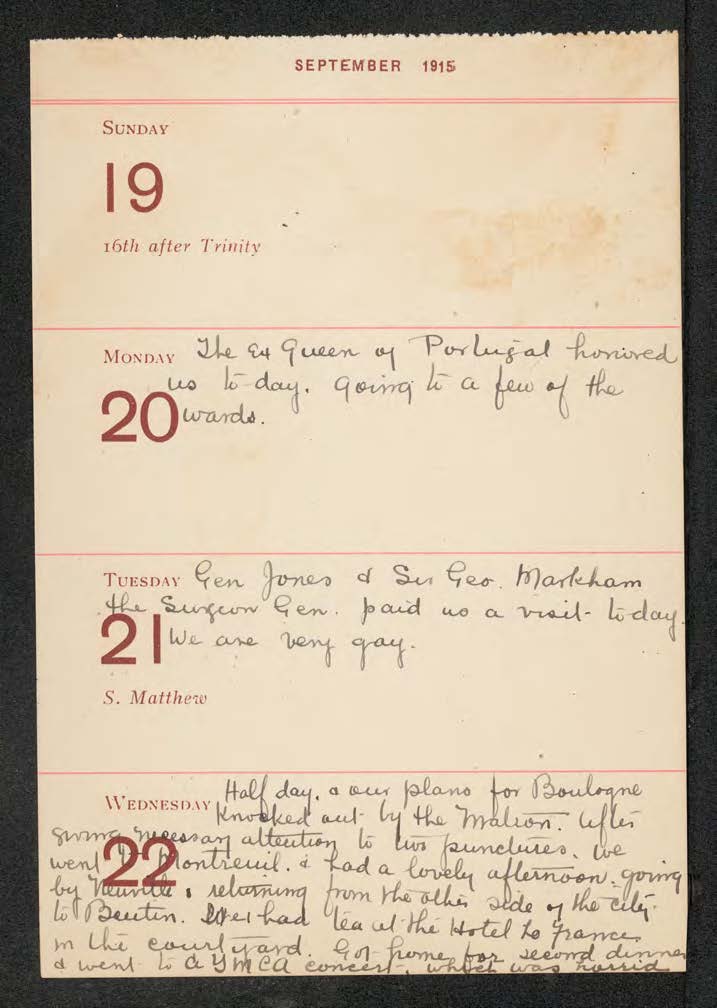 SEPTEMBER 1915
SUNDAY
19
16th after Trinity
MONDAY The Ex Queen of Portugal honored
us to-day. going to a few of the
20 wards.
TUESDAY Gen Jones & Sir Geo. Markham
the Surgeon Gen. paid us a visit to day.
21 We are very gay.
S. Matthew
Half day. & our plans for Boulogne
WEDNESDAY Knocked out by the Matron. After
giving necessary attention to two punctures. we
22
went to Montreuil. & had a lovely afternoon. going
by Neuville, returning from the other side of the city.
to Beutin. We had tea at the Hotel de France
in the court yard. Got home for second dinner
& went to a YMCA concert, which was horrid